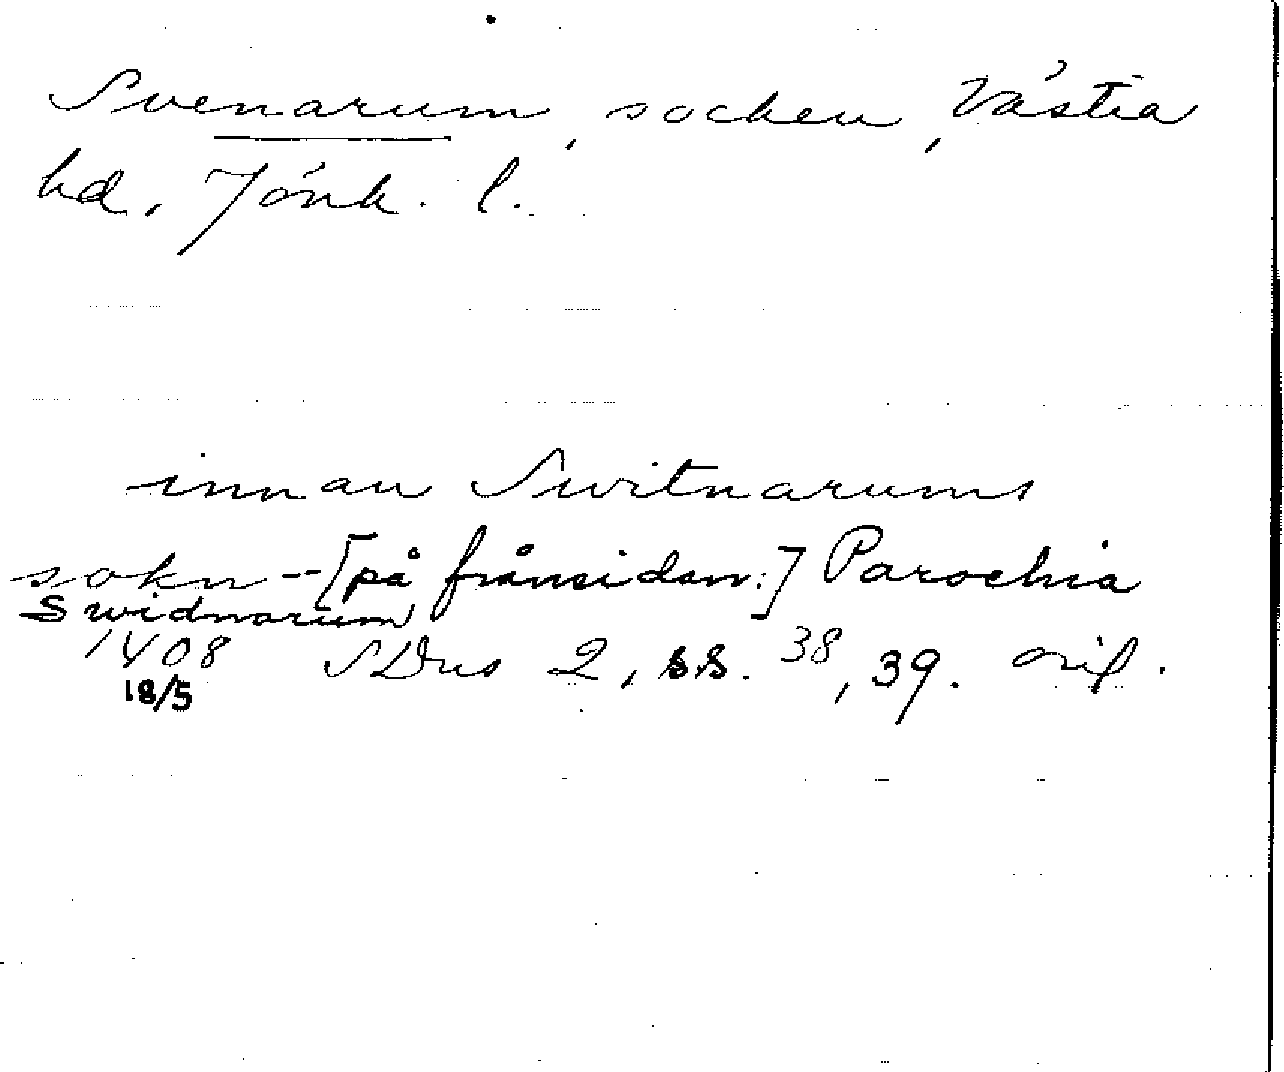 Svenarum, socken, Västra
hd. Jönk. l.
innan Switnarums
sokn -- [på frånsidan:] Parochia
Swidnarum
1408 SDns 2, ss. 38, 39. orig.
18/5